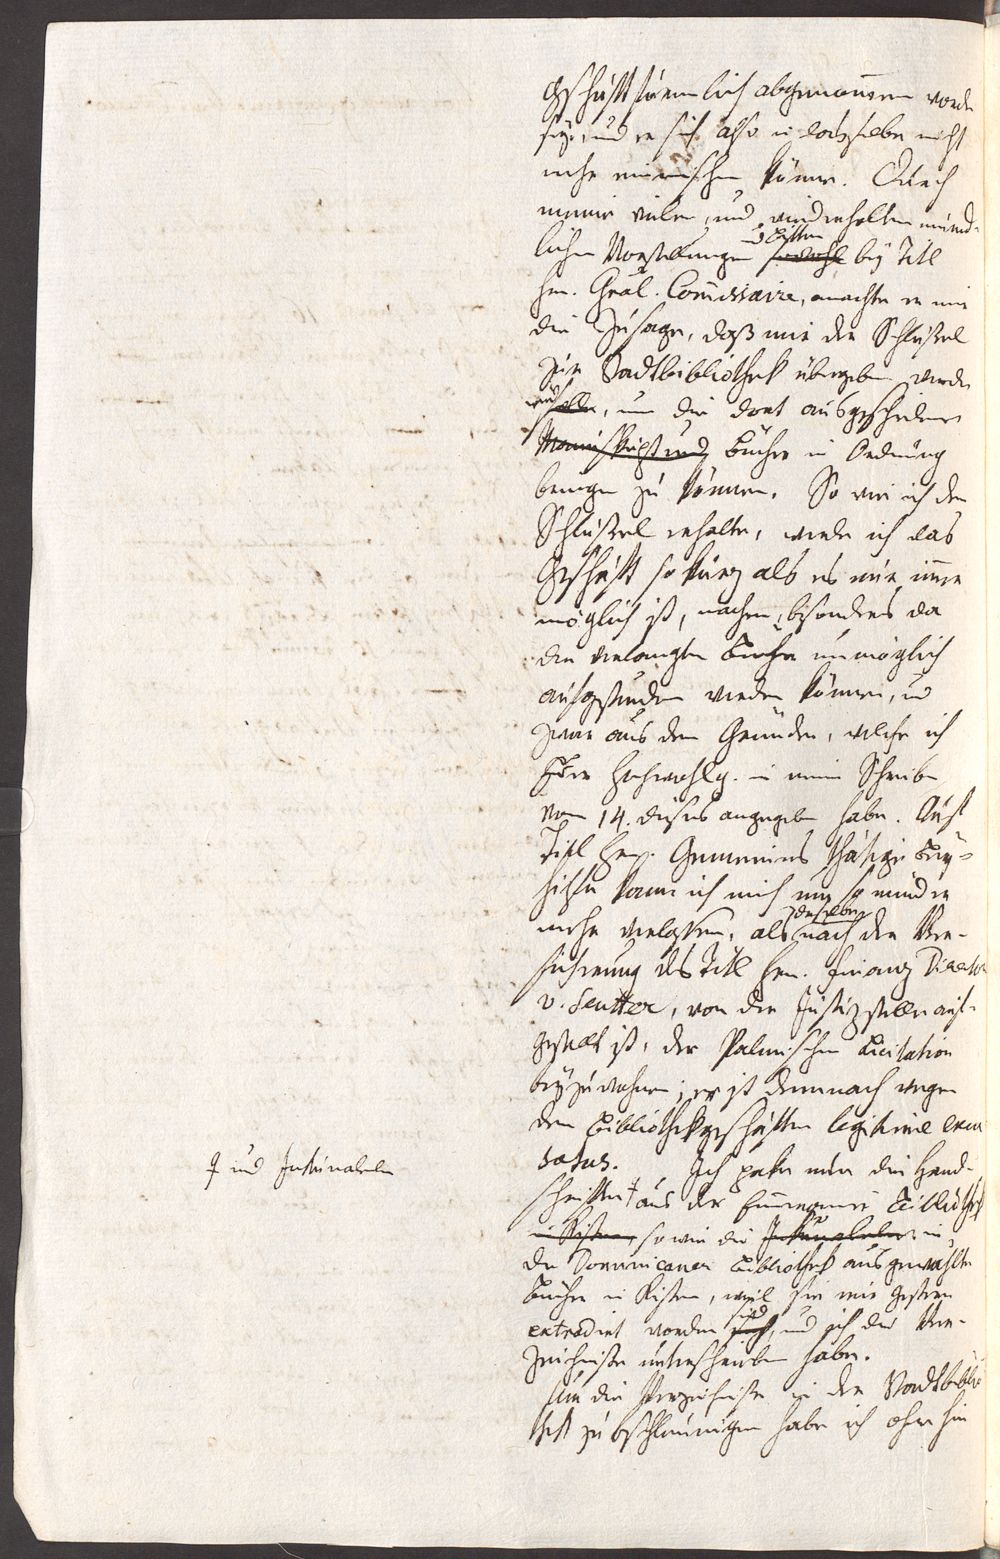 Geschäft förmlich abgenommen worden
sey, und er sich also in dasselbe nicht
mehr einmischen könne. Durch
meine vielen, und wiederholten münd-
lichen Vorstellungen u Bitten bey Titl
Hrn. Gral. Commissaire, machte er mir
die Zusage, daß mir der Schlüßel
zur Stadtbibliothek übergeben werden
wird, um die dort ausgeschiedenen
Manuskript und Bücher in Ordnung
bringen zu können. So wie ich den
Schlüßel erhalte, werde ich das
Geschäft so kurz als es mir immer
möglich ist, machen, besonders da
die verlangten Bücher unmöglich
aufgefunden werden können, und
zwar aus den Gründen, welche ich
Euer Hochwohlg. in meinem Schreiben
vom 14. dieses angegeben habe. Auf
Titl Hrn. Gemeiners thätige Bey-
hilfe kann ich mich um so minder
mehr verlassen, als derselbe nach der Ver-
sicherung des Titl Hrn. Finanz Direktor
v. Seutter, von der Justizstelle auf-
gestellt ist, der Palmischen Licitation
beyzuwohnen; er ist demnach wegen
den Bibliothekgeschäften legitime excu
satus. Ich packe nun die Hand-
schriften † aus der Emmeramer Bibliothek
† und Inkunabeln
in Kisten, so wie die Inkunabeln in
der Dominicaner Bibliothek ausgewählten
Bücher in Kisten, weil sie mir gestern
extradirt worden sind, und ich die Ver-
zeichniße unterschrieben habe.
Um die Verzeichniße in der Stadtbiblio
thek zu beschleunigen habe ich ohnehin